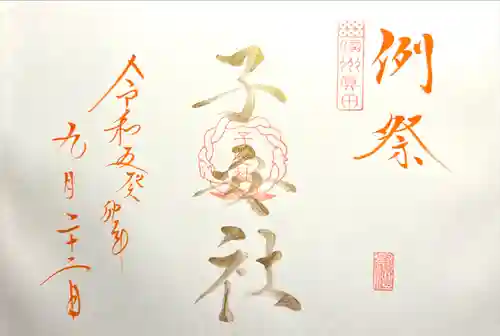 例祭
信州真田
子安社
令和五癸卯年
九月二十二日